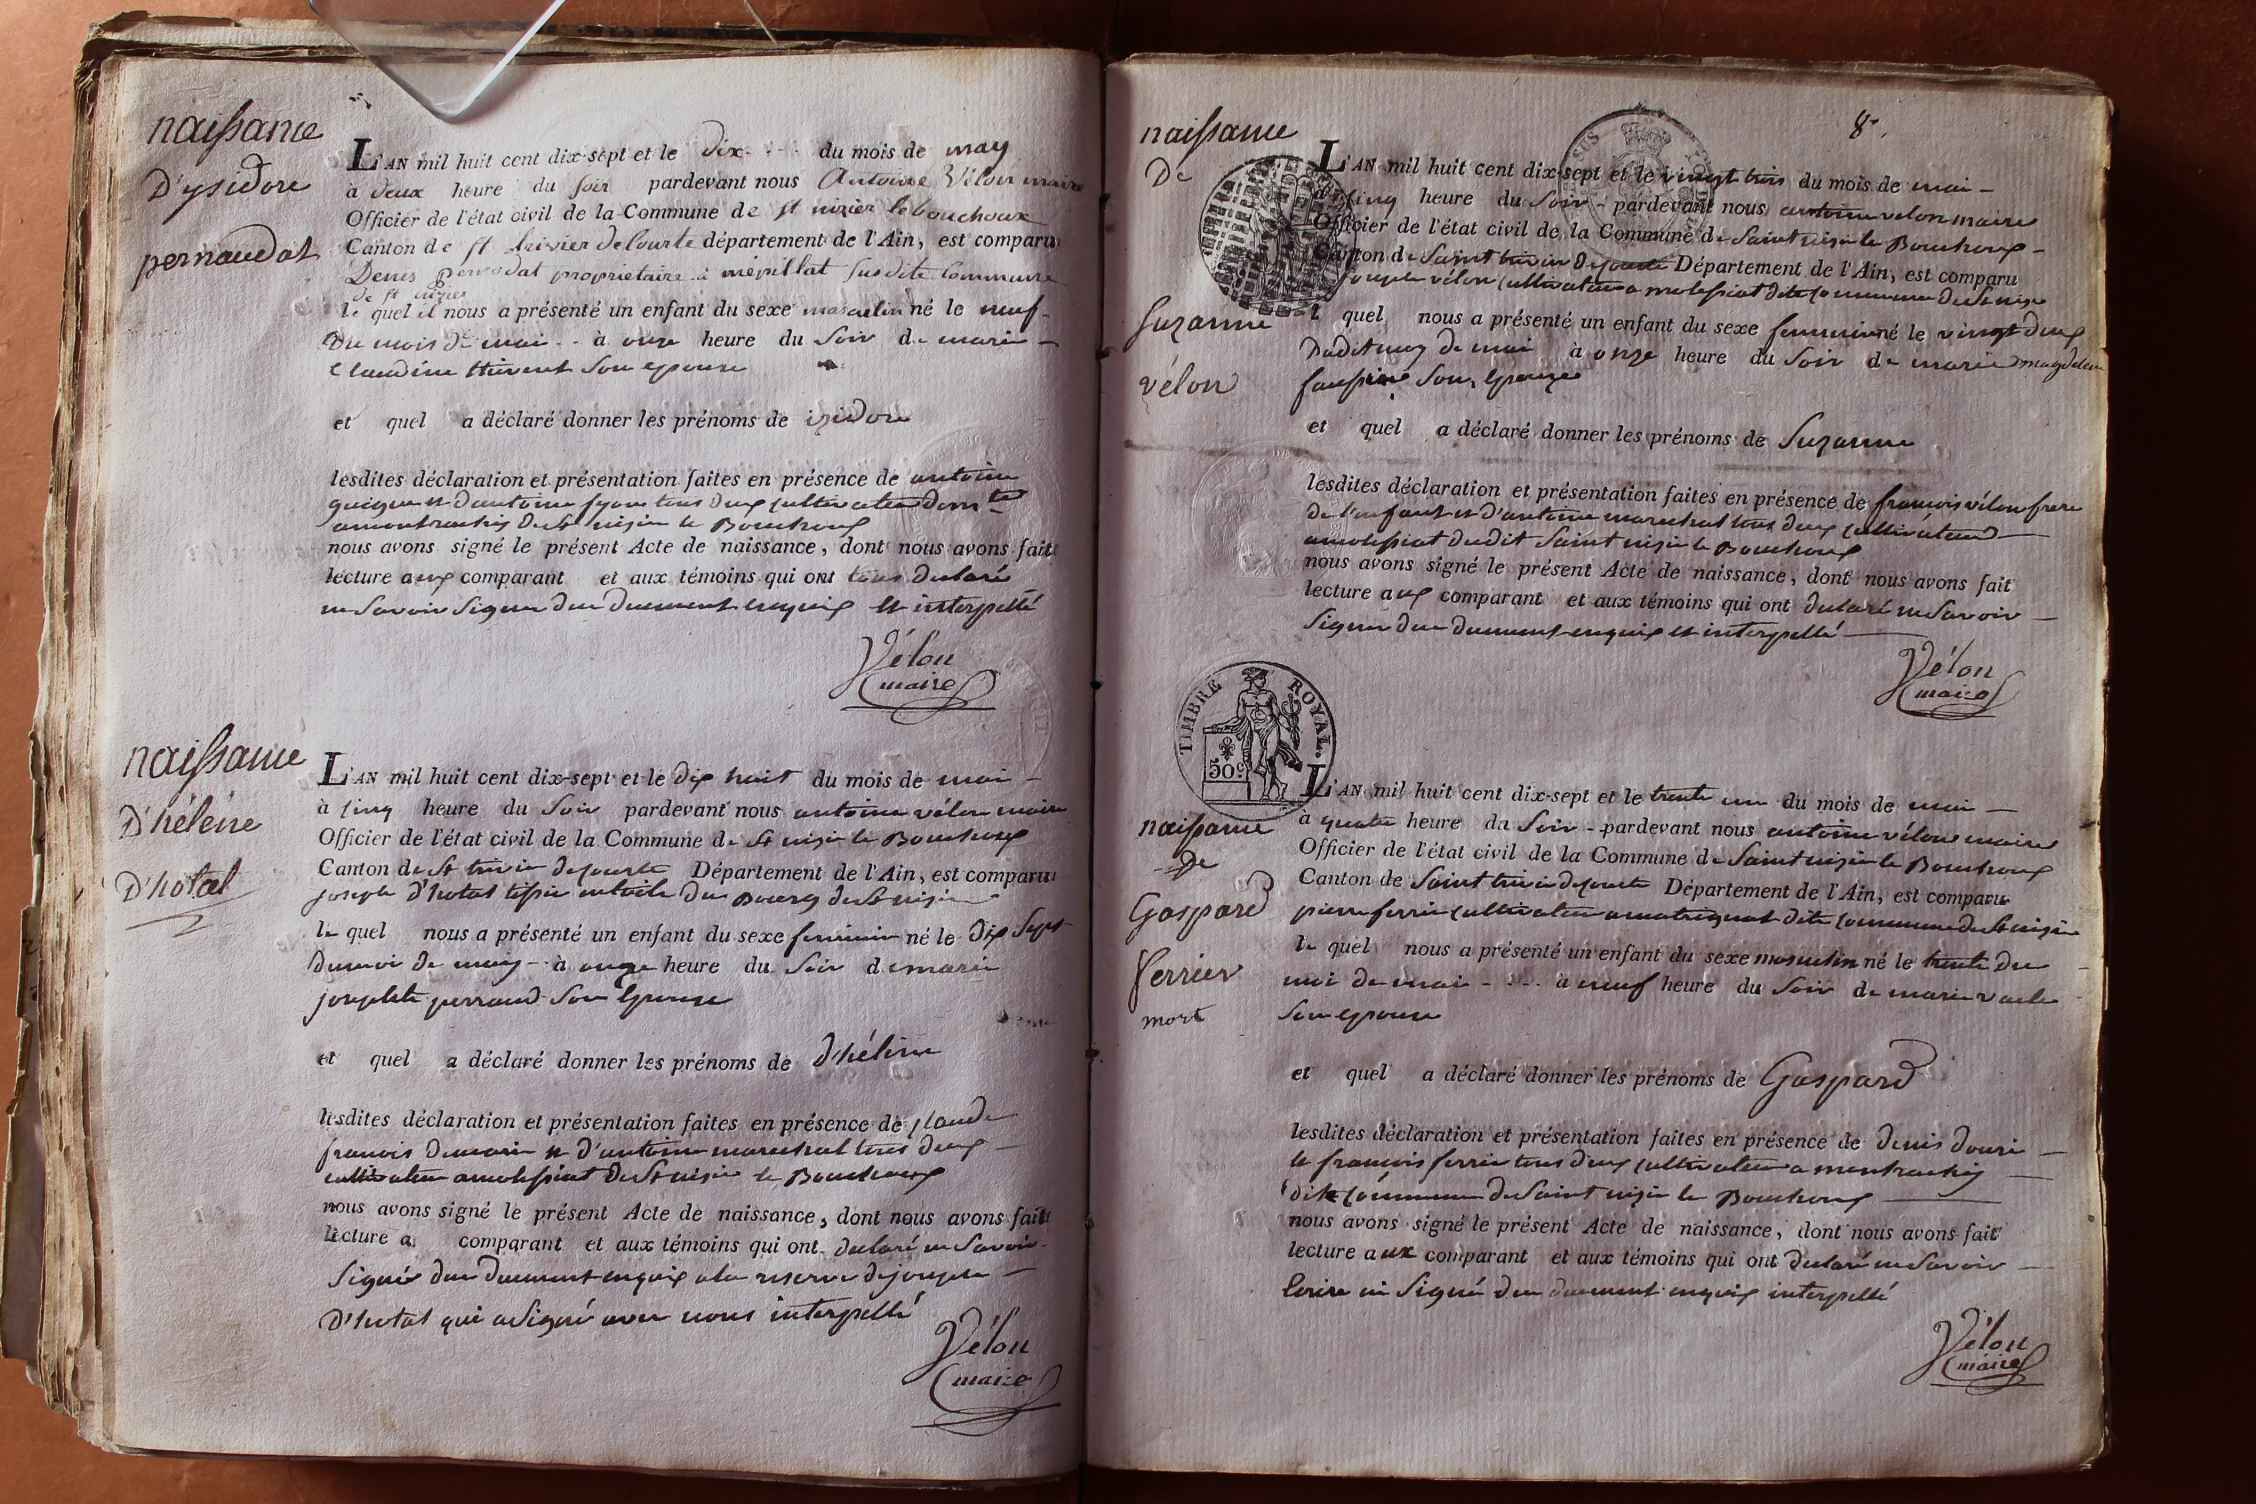 naissance
D'ysidore
pernaudat
L'AN mil huit cent dix-sept et le dix du mois de may
à deux heure du soir pardevant nous Antoine Vélon maire
Officier de l'état civil de la Commune de st nizier lebouchoux
Canton de st trivier de Courte département de l'Ain, est comparu
Denis pernodat propriétaire à mépillat susdite Commune
de st nizier
le quel il nous a présenté un enfant du sexe masculin né le neuf
Du mois de mai à onze heure du soir de marie
Claudine thivent son epouse
et quel a déclaré donner les prénoms de izidore
lesdites déclaration et présentation faites en présence de antoine
et d'antoine tous deux cultivateur
de st nizier le Bouchoux
nous avons signé le présent Acte de naissance, dont nous avons fait
lecture aux comparant et aux témoins qui ont tous declaré
ne savoir signer de ce duement enquis et interpellé
Vélon
maire
naissance
D'héléne
D'hotal
L'AN mil huit cent dix-sept et le dix huit du mois de mai
à cinq heure du soir pardevant nous antoine vélon maire
Officier de l'état civil de la Commune de st nizier le Bouchoux
Canton de st trivier de courte Département de l'Ain, est comparu
joseph d'hotal du Bourg de st nizier
le quel nous a présenté un enfant du sexe feminin né le dix sept
du moi de mai à onze heure du soir de marie
josephte perraud son epouse
et quel a déclaré donner les prénoms de d'héléne
lesdites déclaration et présentation faites en présence de claude
francois et d'antoine marechal tous deux
cultivateur a molissiat de st nizier le Bouchoux
nous avons signé le présent Acte de naissance, dont nous avons fait
lecture a comparant et aux témoins qui ont declaré ne savoir
signér de ce duement enquis a la reserve de joseph
D'hotal qui a signé avec nous interpellé
Vélon
maire
8e.
naissance
De
Suzanne
vélon
L'AN mil huit cent dix-sept et le vingt trois du mois de mai
à cinq heure du soir pardevant nous antoine vélon maire
Officier de l'état civil de la Commune de Saint nizier le Bouchoux
Canton de Saint trivier de courte Département de l'Ain, est comparu
joseph vélon cultivateur a molissiat dite commune de st nizier
l quel nous a présenté un enfant du sexe feminin né le vingt deux
Dudit moy de mai à onze heure du soir de marie magdeleine
son epouze
et quel a déclaré donner les prénoms de Suzanne
lesdites déclaration et présentation faites en présence de françois vélon frere
de l'enfant et d'antoine marechal tous deux cultivateur
a molissiat dudit Saint nizier le Bouchoux
nous avons signé le présent Acte de naissance, dont nous avons fait
lecture aux comparant et aux témoins qui ont declaré ne savoir
signer de ce duement enquis et interpellé
Vélon
maire
TIMBRE ROYAL.
50c
naissance
De
Gaspard
ferrier
mort
L'AN mil huit cent dix-sept et le trente un du mois de mai
à quatre heure du soir pardevant nous antoine vélon maire
Officier de l'état civil de la Commune de Saint nizier le Bouchoux
Canton de Saint trivier de courte Département de l'Ain, est comparu
pierre ferrier cultivateur a dite commune de st nizier
le quel nous a présenté un enfant du sexe masculin né le trente du
moi de mai à neuf heure du soir de marie
son epouse
et quel a déclaré donner les prénoms de Gaspard
lesdites déclaration et présentation faites en présence de denis
et françois ferrier tous deux cultivateur a
dite commune de Saint nizier le Bouchoux
nous avons signé le présent Acte de naissance, dont nous avons fait
lecture aux comparant et aux témoins qui ont declaré ne savoir
écrire ni signé de ce duement enquis interpellé
Vélon
maire